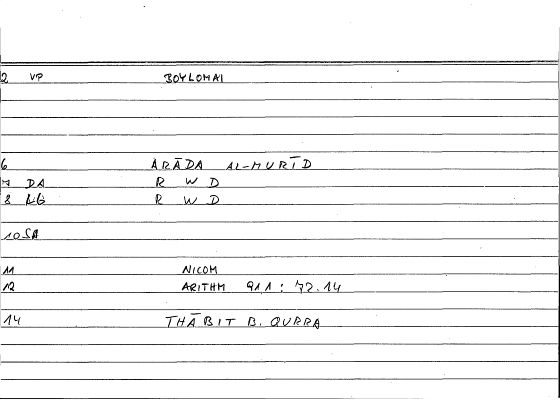 2 VP BOYLOMAI
6 ARĀDA AL-MURĪD
7 DA R W D
8 LG R W D
10 SA
11 NICOM
12 ARITHM 9 1 1 : 72.14
14 THĀBIT B. QURRA